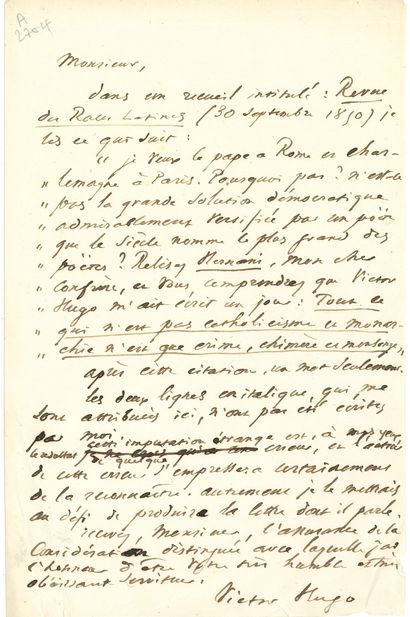 A
2704
Monsieur,
dans un recueil intitulé : Revue
des Races Latines (30 septembre 1850) je
lis ce qui suit :
" je veux le pape à Rome et Char-
" lemagne à Paris. Pourquoi pas ? n'est-ce
" pas la grande solution démocratique
" admirablement versifiée par un poëte
" que le Siècle nomme le plus grand des
" poëtes ? Relisez Hernani, mon cher
" confrère, et vous comprendrez que Victor
" Hugo m'ait écrit un jour : Tout ce
" qui n'est pas catholicisme et monar-
" chie n'est que crime, chimère et mensonge "
après cette citation, un mot seulement.
les deux lignes en italique, qui me
sont attribuées ici, n'ont pas été écrites
par moi. cette imputation étrange est, à mes yeux,
le résultat de quelque erreur, et l'auteur
de cette erreur s'empressera certainement
de la reconnaître. autrement je le mettrais
au défi de produire la lettre dont il parle.
recevez, Monsieur, l'assurance de la
Considération distinguée avec laquelle j'ai
l'honneur d'être votre très humble et très
obéissant serviteur.
Victor Hugo